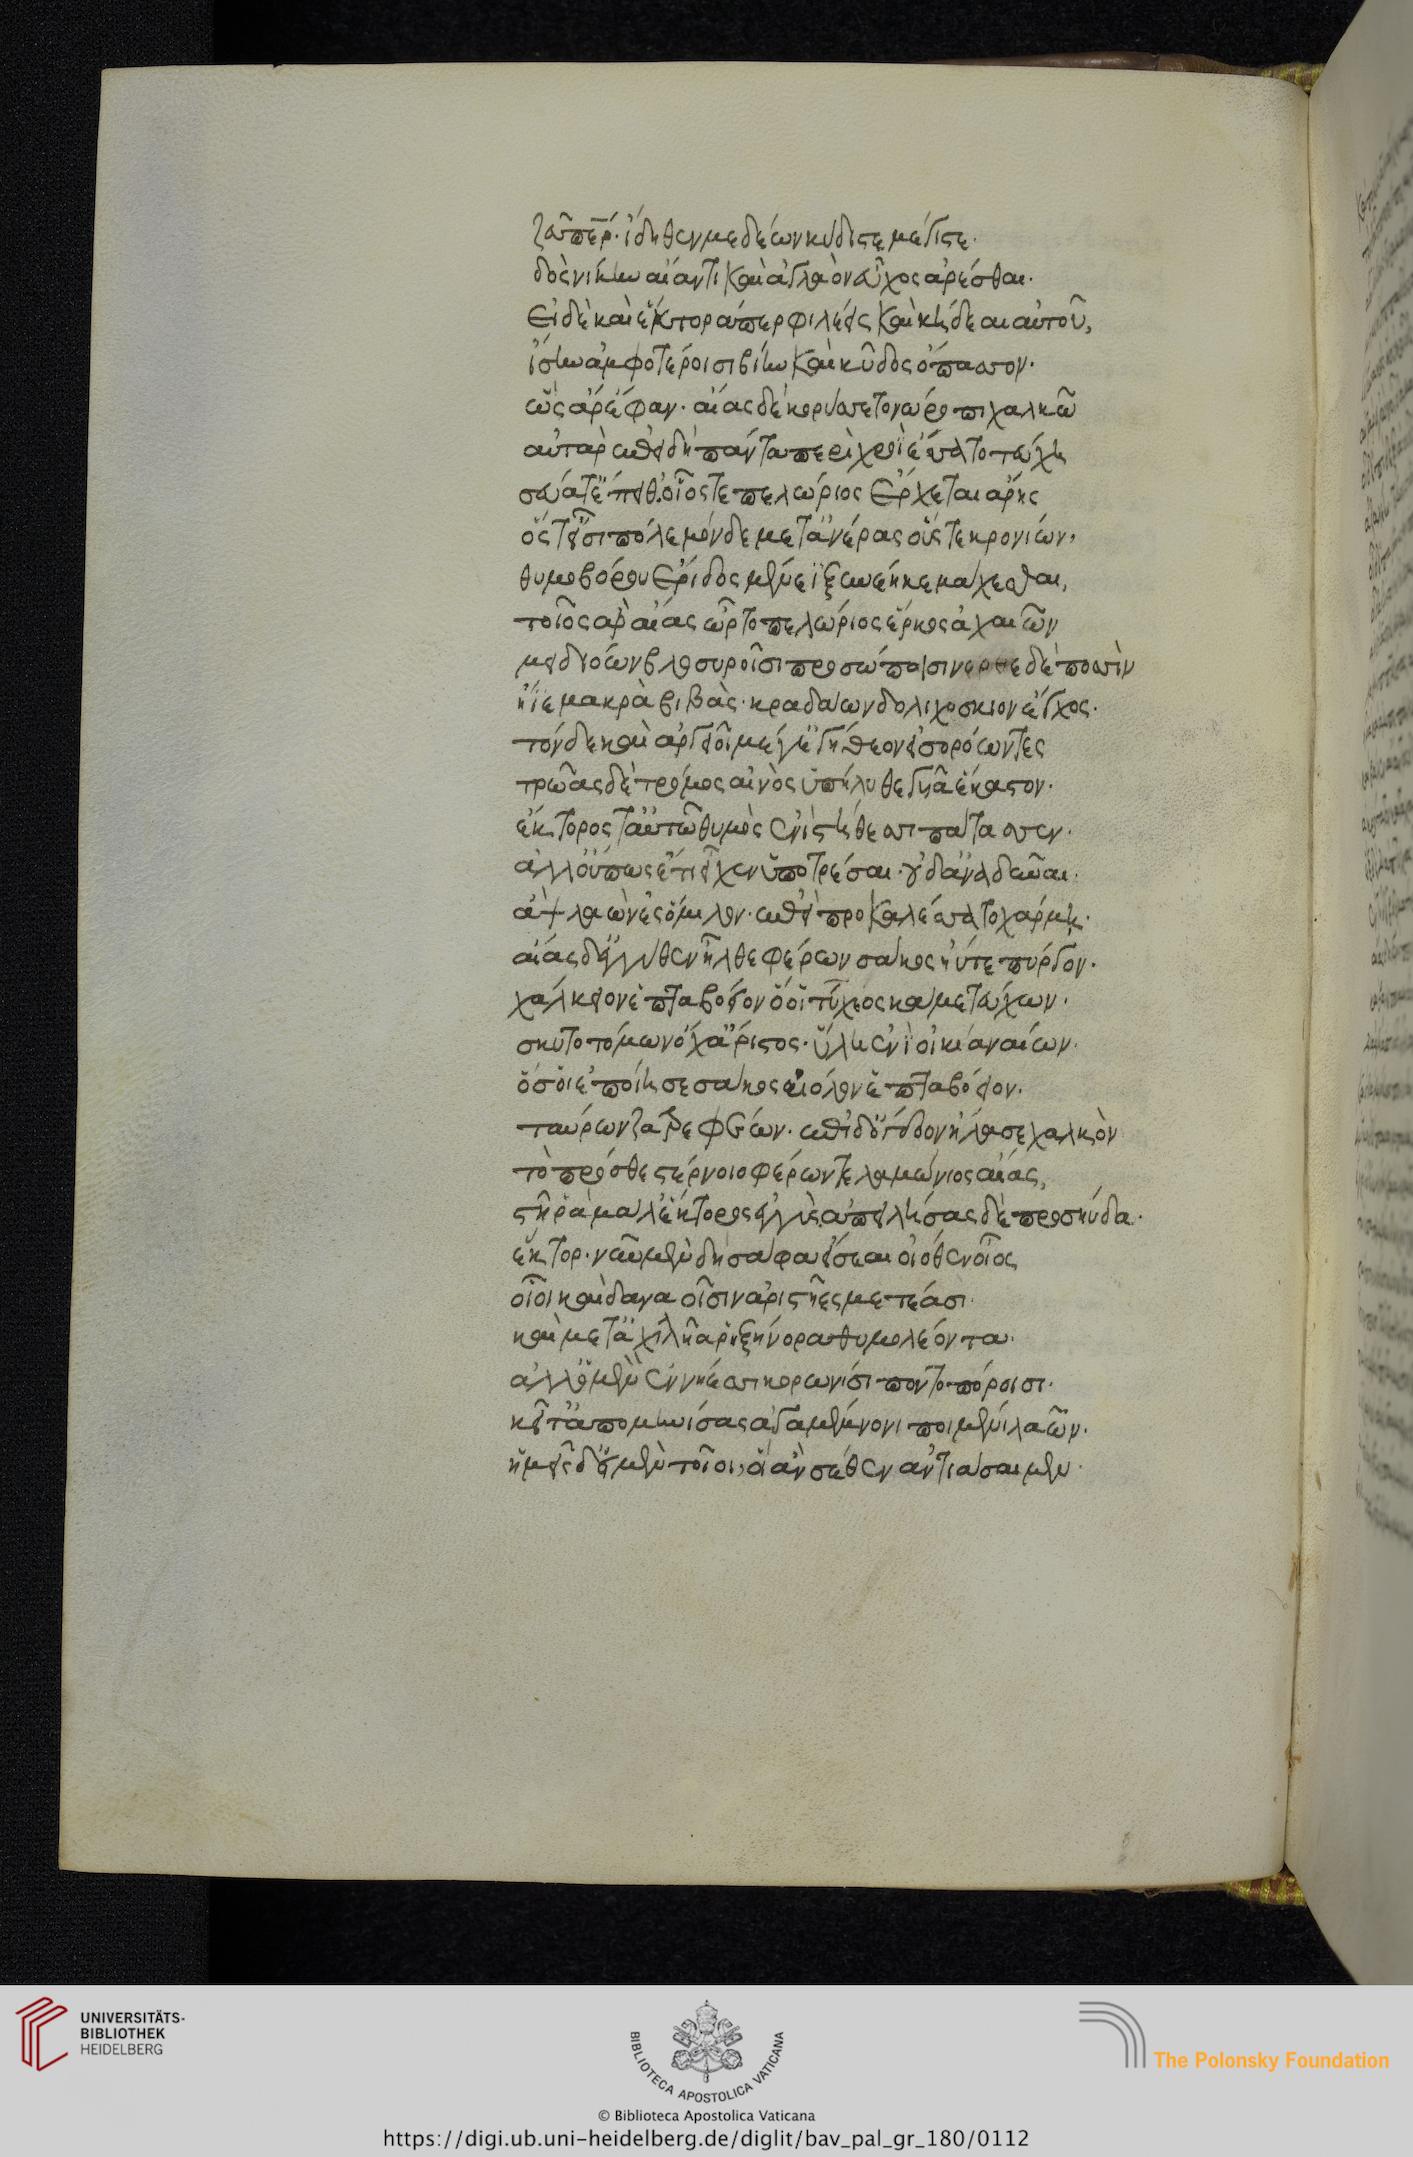 ζεῦ περ· ἴδηθεν μεδέων κύδιστε μέγιστε·
δὸς νίκην αἴαντι καὶ ἀγλαὸν εὖχος ἀρέσθαι·
Εἰ δὲ καὶ ἕκτορά περ φιλέεις καὶ κήδεαι αὐτοῦ,
ἴσην ἀμφοτέροισι βίην καὶ κῦδος ὄπασσον·
ὣς ἄρ ἔφαν· αἴας δὲ κορύσσετο νώροπι χαλκῶ
αὐτὰρ ἐπεὶ δὴ πάντα περὶ χροῒ ἕσσατο τεύχη
σεύατ ἔπειθ οἷός τε πελώριος ἔρχεται ἄρης
ὅς τ εἶσι πόλεμόνδε μετ ἀνέρας οὕς τε κρονίων·
θυμοβόρου ἔριδος μένεϊ ξυνέηκε μάχεσθαι,
τοῖος ἄρ αἴας ὦρτο πελώριος ἕρκος ἀχαιῶν
μειδιόων βλοσυροῖσι προσώπασι νερθε δὲ ποσσὶν
ἤϊε μακρὰ βιβὰς· κραδάων δολιχόσκιον ἔγχος·
τόν δε καὶ ἀργεῖοι μέγ ἐγήθεον εἰσορόωντες
τρῶας δὲ τρόμος αἰνὸς ὑπήλυθε γυῖα ἕκαστον·
ἕκτορος τ αὐτῶ θυμὸς ἐνὶ στήθεσσι πάτασσεν·
ἀλλ οὔπως ἔτι εἶχεν ὑποτρέσαι· οὐδ ἀναδῦναι·
ἂψ λαῶν ἐς ὅμιλον· ἐπεὶ προκαλέσσατο χάρμη·
αἴας δ ἐγγύθεν ἦλθε φέρων σάκος ἠύτε πύργον·
χάλκεον ἑπταβόειον ὅ οἱ τύχιος κάμε τεύχων·
σκυτοτόμων ὄχ ἄριστος· ὕλη ἐνὶ οἰκία ναίων·
ὅς οἱ ἐποίησε σάκος αἰόλον ἑπταβόειον·
ταύρων ζατρεφέων· ἐπὶ δ ὄγδοον ἤλασε χαλκὸν
τὸ πρόσθε στέρνοιο φέρων τελαμώνιος αἴας,
στῆ ῥὰ μάλ ἕκτορος ἐγγὺς ἀπειλήσας δὲ προσηύδα·
ἕκτορ· νῦν μὲν δὴ σάφα εἴσεαι οἰόθεν οἶος
οἷοι καὶ δαναοῖσιν ἀριστῆες μετέασι·
καὶ μετ ἀχιλῆα ῥηξήνορα θυμολέοντα·
ἀλλ ὃ μὲν ἐν νήεσσι κορωνίσι ποντοπόροισι·
κεῖτ ἀπομηνίσας ἀγαμέμνονι ποιμένι λαῶν·
ἡμεῖς δ εἰμὲν τοῖοι, οἳ ἂν σέθεν ἀντιάσαιμεν·
UNIVERSITÄTS-
BIBLIOTHEK
HEIDELBERG
BIBLIOTECA APOSTOLICA VATICANA
The Polonsky Foundation
© Biblioteca Apostolica Vaticana
https://digi.ub.uni-heidelberg.de/diglit/bav_pal_gr_180/0112